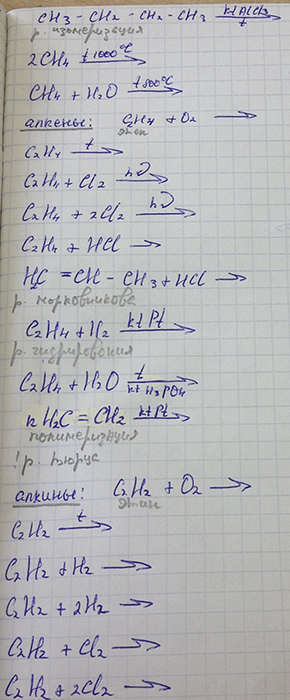 CH3 - CH2 - CH2 - CH3 kt AlCl3 t →
р. изомеризация
2CH4 t 1000°C →
CH4 + H2O t 800°C →
алкены: C2H4 + O2 →
этен
C2H4 t →
C2H4 + Cl2 hν →
C2H4 + 2Cl2 hν →
C2H4 + HCl →
H2C = CH - CH3 + HCl →
р. морковникова
C2H4 + H2 kt Pt →
р. гидрирования
C2H4 + H2O t kt H3PO4 →
n H2C = CH2 kt Pt →
полимеризация
! р. Вюрца
алкины: C2H2 + O2 →
этин
C2H2 t →
C2H2 + H2 →
C2H2 + 2H2 →
C2H2 + Cl2 →
C2H2 + 2Cl2 →